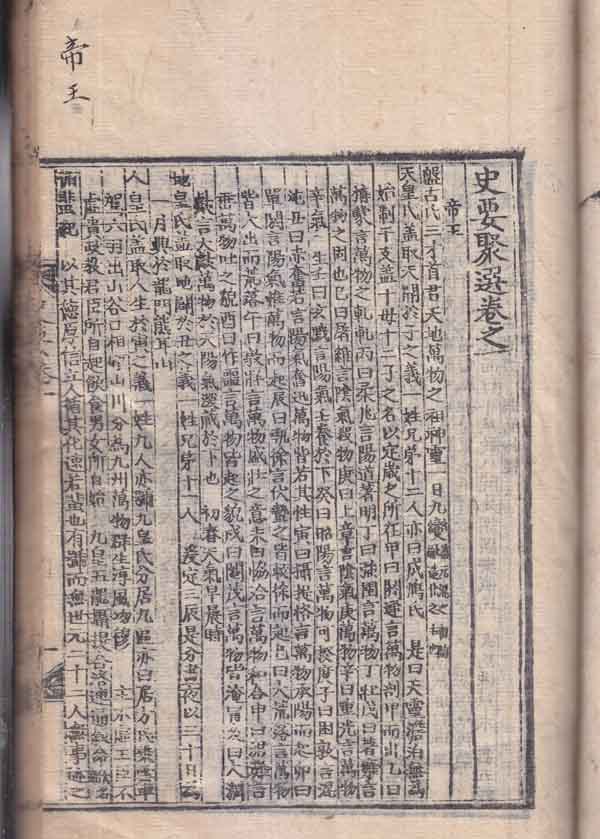 帝王
史要聚選卷之一
帝王
盤古氏三才首君天地萬物之祖神靈一日九變
天皇氏盖取天開於子之義一姓兄弟十二人亦曰成鳩氏 是曰天靈澹泊無為
始制干支盖十母十二子之名以定歲之所在甲曰閼逢言萬物剖甲而出乙曰
旃蒙言萬物之軋軋丙曰柔兆言陽道著明丁曰强圉言萬物丁壯戊曰著雍言
萬物之固也己曰屠維言陰氣殺物庚曰上章言陰氣庚萬物辛曰重光言萬物
辛氣 生壬曰玄黓言陽氣壬養於下癸曰昭陽言萬物可揆度子曰困敦言混
沌丑曰赤奮若言陽氣奮迅萬物皆若其性寅曰攝提格言萬物承陽而起卯曰
單閼言陽氣推萬物而起辰曰執徐言伏蟄之皆敕徐而起巳曰大荒落言萬物
皆大出而荒落午曰敦牂言萬物盛壯之意未曰協洽言萬物和合申曰涒灘言
萬物吐之貌酉曰作噩言萬物皆起之貌戌曰閹茂言萬物皆淹冒亥曰大淵
獻言大獻萬物於陽氣深藏於下也 初春天氣早晨時
地皇氏盖取地闢於丑之義一姓兄弟十一人 爰定三辰是分晝夜以三十日為
一月興於龍門熊耳山
人皇氏盖取人生於寅之義一姓九人亦號九皇氏分居九區亦曰居方氏 雲車
駕六羽出谷口相山川分為九州萬物群生淳風 主不虛王臣不
虛貴政敎君臣所自起飮食男女所自始 九皇五龍攝提合洛連通敘命
以其德厚信 人 其化速若 也有號而無世凡二十二人無事迹之